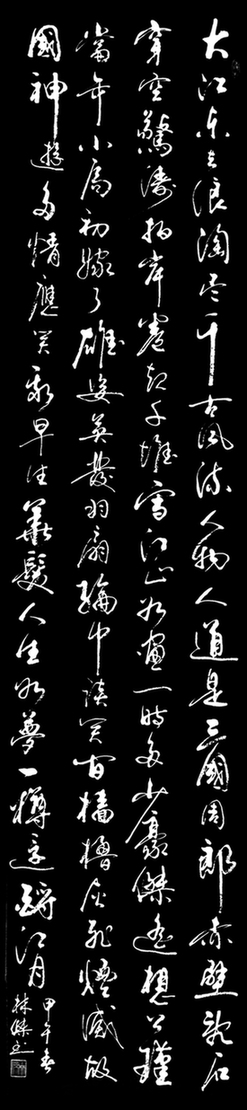 大江东去浪淘尽千古風流人物人道是三國周郎赤壁亂石
穿空驚濤拍岸卷起千堆雪江山如畫一時多少豪傑遙想公瑾
當年小喬初嫁了雄姿英發羽扇綸巾談笑間檣櫓灰飛煙滅故
國神遊多情應笑我早生華髮人生如夢一樽還酹江月
甲午春